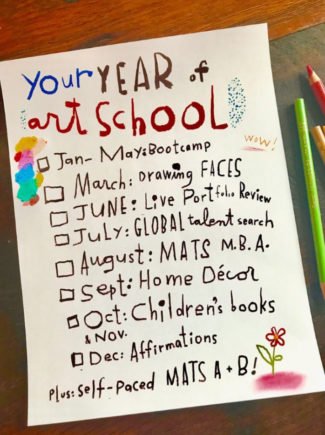 your YEAR of
art SCHOOL
WOW!
Jan- May: Bootcamp
March: Drawing FACES
JUNE: Live Portfolio Review
July: GLOBAL talent search
August: MATS M.B.A.
Sept: Home Décor
Oct: Children's books
& Nov.
Dec: Affirmations
Plus: Self-Paced MATS A + B!